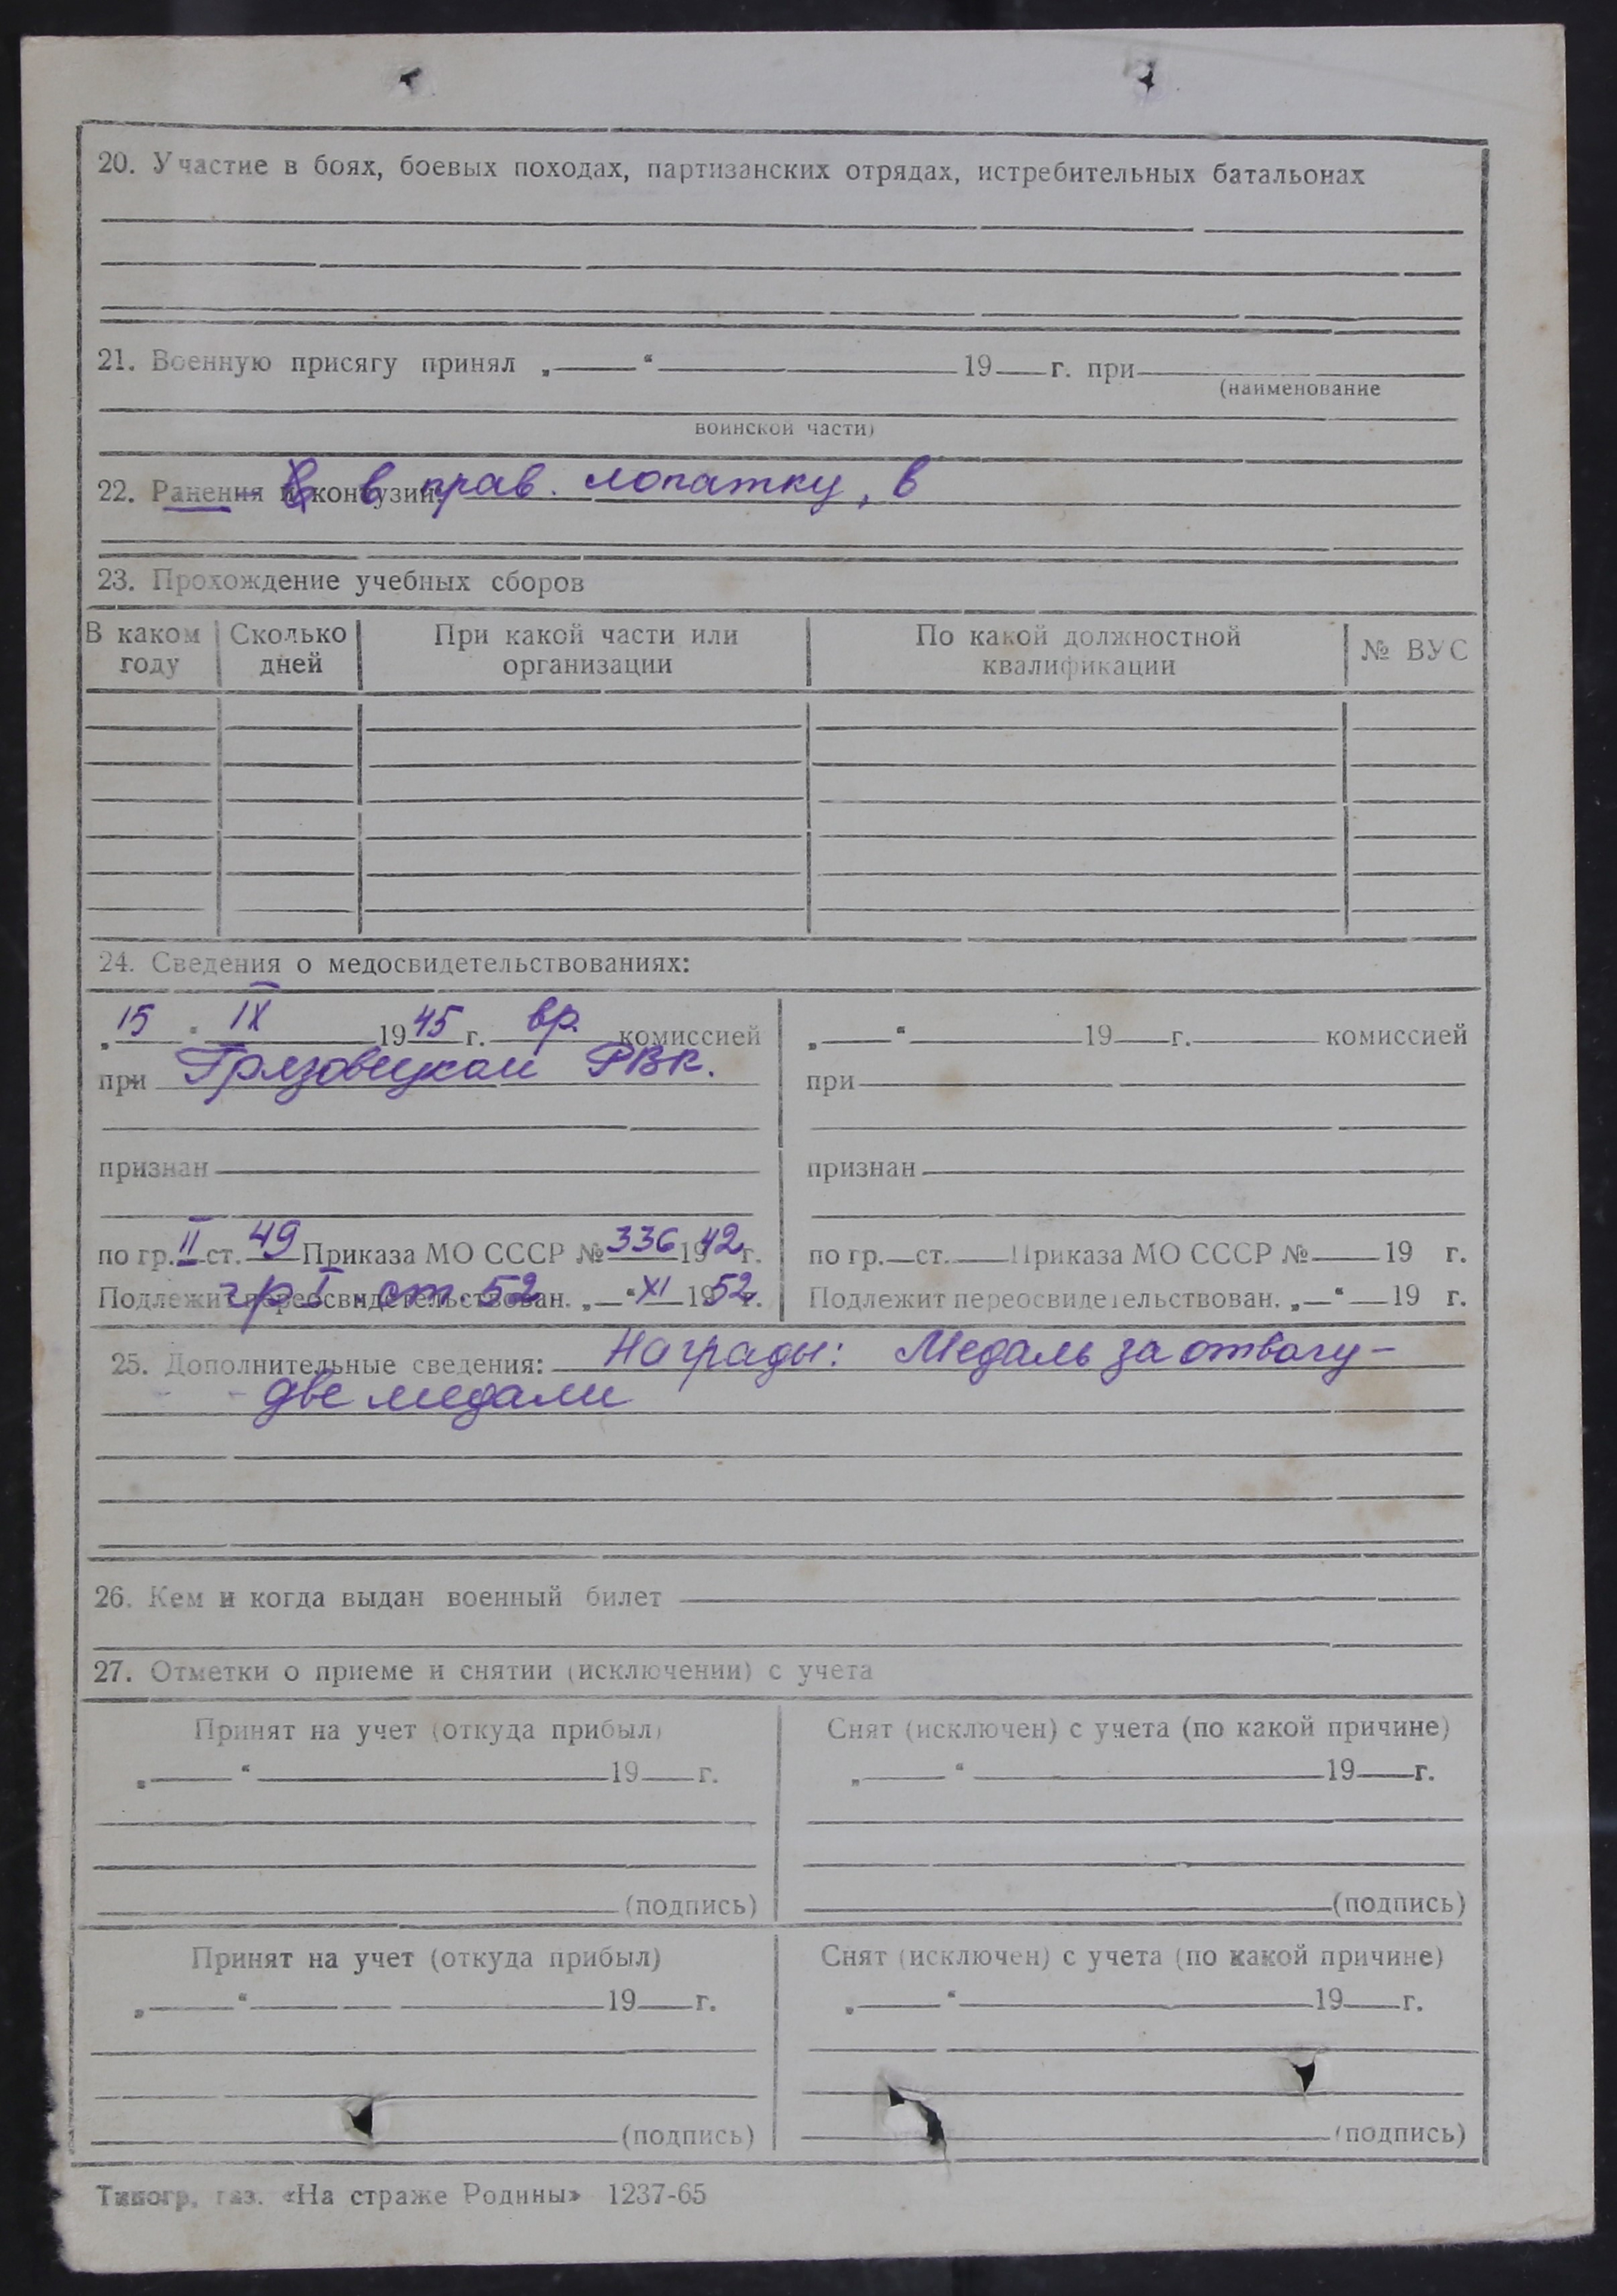 20. Участие в боях, боевых походах, партизанских отрядах, истребительных батальонах
21. Военную присягу принял „ “ 19 г. при
(наименование
воинской части)
22. Ранения и контузии: в прав. лопатку, в
23. Прохождение учебных сборов
В каком году Сколько дней При какой части или организации По какой должностной квалификации № ВУС
24. Сведения о медосвидетельствованиях:
„15“ IX 1945 г. вр. комиссией
при Грязовецком РВК.
признан
по гр. II ст. 49 Приказа МО СССР № 336 1942 г.
гр I ст. 52
Подлежит переосвидетельствован. „ “ XI 1952 г.
„ “ 19 г. комиссией
при
признан
по гр. ст. Приказа МО СССР № 19 г.
Подлежит переосвидетельствован. „ “ 19 г.
25. Дополнительные сведения: Награды: Медаль за отвагу –
две медали
26. Кем и когда выдан военный билет
27. Отметки о приеме и снятии (исключении) с учета
Принят на учет (откуда прибыл)
„ “ 19 г.
(подпись)
Снят (исключен) с учета (по какой причине)
„ “ 19 г.
(подпись)
Принят на учет (откуда прибыл)
„ “ 19 г.
(подпись)
Снят (исключен) с учета (по какой причине)
„ “ 19 г.
(подпись)
Типогр. газ. «На страже Родины» 1237-65